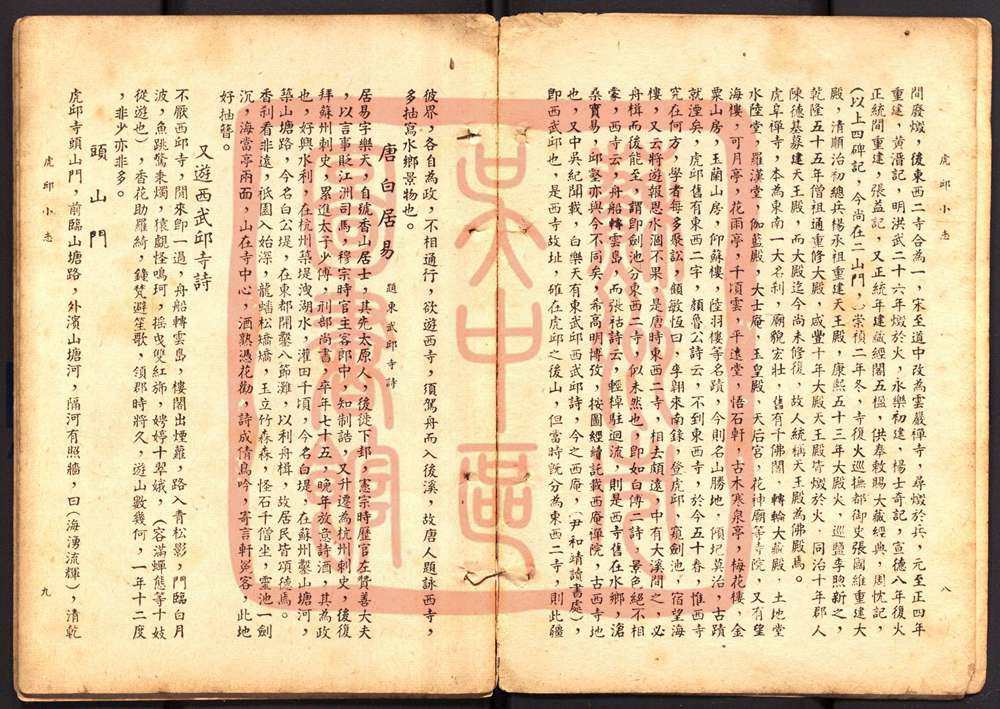 虎邱小志
八
間廢燬，後東西二寺合為一，宋至道中改為雲巖禪寺，尋燬於兵，元至正四年
重建，黃溍記，明洪武二十六年燬於火，永樂初建，楊士奇記，宣德八年復火
正統間重建，張益記，又正統年建藏經閣五楹，供奉敕賜大藏經典，周忱記，
（以上四碑記，今尚在二山門，）崇禎二年冬，寺復火巡撫都御史張國維重建大
殿，清順治初總兵楊承祖重建天王殿，康熙五十三年大殿火，巡鹽李煦新之，
乾隆五十五年僧祖通重修大殿，咸豐十年大殿天王殿皆燬於火，同治十年郡人
陳德基募建天王殿，而大殿迄今尚未修復，故人統稱天王殿為佛殿焉。
虎阜禪寺，本為東南一大名刹，廟貌宏壯，舊有千佛閣，轉輪大藏殿，土地堂
水陸堂，羅漢堂，伽藍殿，大士庵，玉皇殿，天后宮，花神廟等寺院，又有望
海樓，可月亭，花雨亭，千頃雲，平遠堂，悟石軒，古木寒泉亭，梅花樓，金
粟山房，玉蘭山房，仰蘇樓，陸羽樓等名蹟，今則名山勝地，傾圮莫治，古蹟
就湮矣，虎邱舊有東西二字，顏魯公詩云，不到東西寺，於今五十春，惟西寺
究在何方，學者每多聚訟，顧敏恆曰，李翱來南錄，登虎邱，窺劍池，宿望海
樓，又云將遊報恩水涸不果，是唐時東西二寺，相去頗遠，中有大溪間之，必
舟楫而後能至，謂即劍池分東西二寺，似未然也，即如白傅二詩，景色絕不相
蒙，西寺云，舟船轉雲島，而張祜詩云，輕棹駐迴流，則是西寺舊在水鄉，滄
桑貿易，邱壑亦與今不同矣，希高明博攷，按圖經續記載西庵禪院，古西寺地
也，又中吳紀聞載，白樂天有東武邱西武邱詩，今之西庵，（尹和靖讀書處），
即西武邱也，是西寺故址，確在虎邱之後山，但當時既分為東西二寺，則此疆
彼界，各自為政，不相通行，欲遊西寺，須駕舟而入後溪，故唐人題詠西寺，
多抽寫水鄉景物也。
唐　白居易　題東武邱寺詩
居易字樂天，自號香山居士，其先太原人，後徙下邽，憲宗時歷官左贊善大夫
，以言事貶江洲司馬，穆宗時官主客郎中，知制誥，又升遷為杭州刺史，後復
拜蘇州刺史，累進太子少傅，刑部尚書，卒年七十五，晚年放意詩酒，其為政
也，好興水利，在杭州築堤洩湖水，灌田千頃，今名白堤，在蘇州鑿山塘河，
築山塘路，今名白公堤，在東都開鑿八節灘，以利舟楫，故居民皆頌德焉。
香刹看非遠，祇園入始深，龍蟠松矯矯，玉立竹森森，怪石千僧坐，靈池一劍
沉，海當亭兩面，山在寺中心，酒熟憑花勸，詩成倩鳥吟，寄言軒冕客，此地
好抽簪。
又遊西武邱寺詩
不厭西邱寺，閒來即一過，舟船轉雲島，樓閣出煙蘿，路入青松影，門臨白月
波，魚跳驚秉燭，猿覷怪鳴珂，搖曳雙紅斾，娉婷十翠娥，（容滿蟬態等十妓
從遊也），香花助羅綺，鐘梵避笙歌，領郡時將久，遊山數幾何，一年十二度
，非少亦非多。
頭山門
虎邱寺頭山門，前臨山塘路，外濱山塘河，隔河有照牆，曰（海湧流輝），清乾
虎邱小志
九